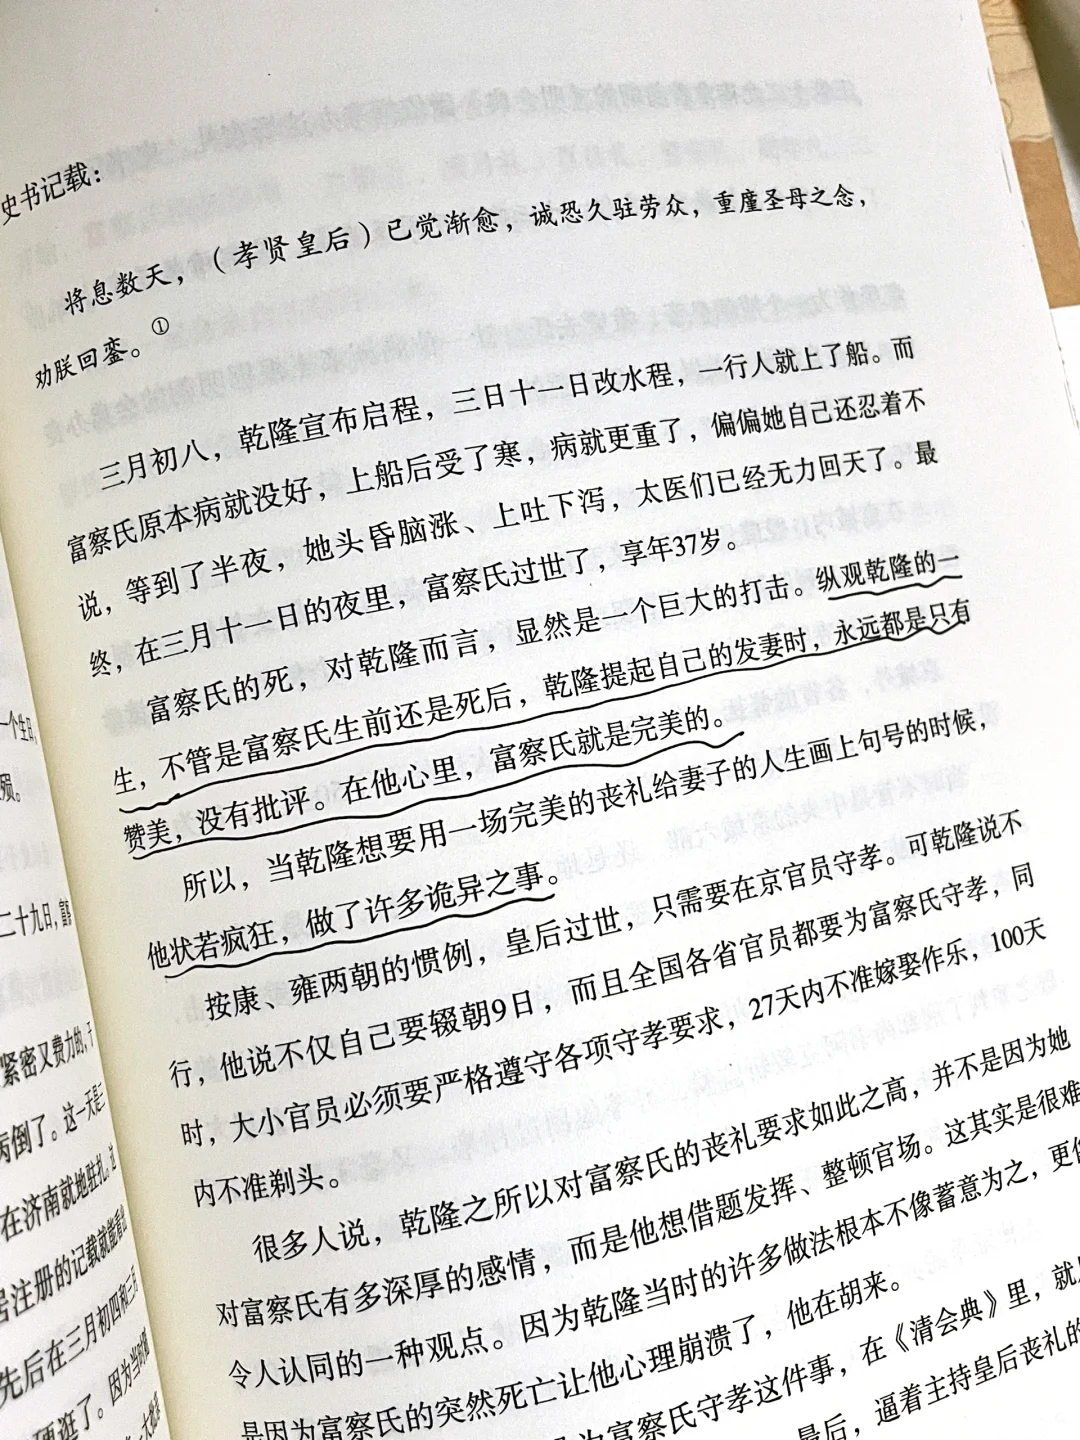 史书记载：
将息数天，（孝贤皇后）已觉渐愈，诚恐久驻劳众，重廑圣母之念，
劝朕回銮。①
三月初八，乾隆宣布启程，三日十一日改水程，一行人就上了船。而
富察氏原本病就没好，上船后受了寒，病就更重了，偏偏她自己还忍着不
说，等到了半夜，她头昏脑涨、上吐下泻，太医们已经无力回天了。最
终，在三月十一日的夜里，富察氏过世了，享年37岁。
富察氏的死，对乾隆而言，显然是一个巨大的打击。纵观乾隆的一
生，不管是富察氏生前还是死后，乾隆提起自己的发妻时，永远都是只有
赞美，没有批评。在他心里，富察氏就是完美的。
所以，当乾隆想要用一场完美的丧礼给妻子的人生画上句号的时候，
他状若疯狂，做了许多诡异之事。
按康、雍两朝的惯例，皇后过世，只需要在京官员守孝。可乾隆说不
行，他说不仅自己要辍朝9日，而且全国各省官员都要为富察氏守孝，同
时，大小官员必须要严格遵守各项守孝要求，27天内不准嫁娶作乐，100天
内不准剃头。
很多人说，乾隆之所以对富察氏的丧礼要求如此之高，并不是因为她
对富察氏有多深厚的感情，而是他想借题发挥、整顿官场。这其实是很难
令人认同的一种观点。因为乾隆当时的许多做法根本不像蓄意为之，更像
是因为富察氏的突然死亡让他心理崩溃了，他在胡来。
为富察氏守孝这件事，在《清会典》里，就
最后，逼着主持皇后丧礼的
一个生日，
二十九日，富
紧密又费力的，于
病倒了。这一天是三
在济南就地驻扎。这
居注册的记载就能看出
先后在三月初四和三月
硬逛了。因为当时朝